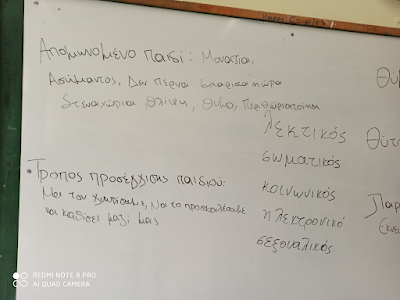 Απομονωμένο παιδί: Μοναξιά,
Ασήμαντος, Δεν περνάει ευχάριστη ώρα
Στεναχώρια Θλίψη, Θυμό, Περιθωριοποίηση
Λεκτικός
σωματικός
κοινωνικός
ηλεκτρονικό
σεξουαλικός
• Τρόπος προσέγγισης παιδιού:
Να τον χαιρετίσουμε, Να το προσκαλέσουμε
να καθίσει μαζί μας
Θυ
Θύτ
Παρ
REDMI NOTE 8 PRO
AI QUAD CAMERA